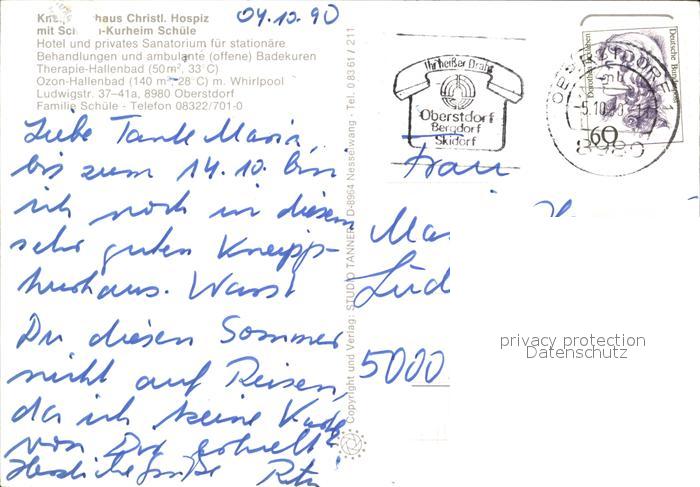 04.10.90
Kneippkurhaus Christl. Hospiz
mit Schroth-Kurheim Schüle
Hotel und privates Sanatorium für stationäre
Behandlungen und ambulante (offene) Badekuren
Therapie-Hallenbad (50 m², 33°C)
Ozon-Hallenbad (140 m², 28°C) m. Whirlpool
Ludwigstr. 37-41a, 8980 Oberstdorf
Familie Schüle - Telefon 08322/701-0
Liebe Tante Maria,
bis zum 14.10. bin
ich noch in diesem
sehr guten Kneipp-
kurhaus. Warst
Du diesen Sommer
nicht auf Reisen,
da ich keine Karte
von Dir erhielt?
Herzliche Grüße
Copyright und Verlag: STUDIO TANNER, D-8964 Nesselwang - Tel. 0 83 61 / 2 11
Ihr heißer Draht
Oberstdorf
Bergdorf
Skidorf
OBERSTDORF 1
-5.10.90
8980
Deutsche Bundespost
60
Frau
Ma
Lüd
5000
privacy protection
Datenschutz